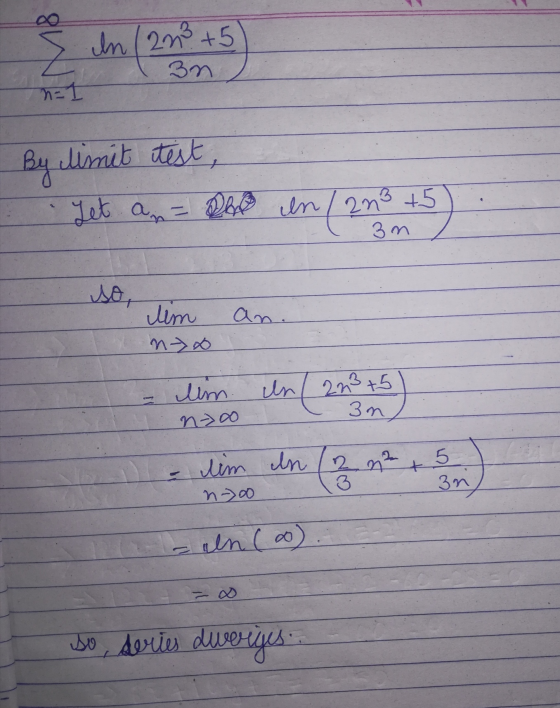 ∞
∑ ln(2n³+5 / 3n)
n=1
By limit test,
Let aₙ = ln(2n³+5 / 3n).
so,
lim aₙ.
n→∞
= lim ln(2n³+5 / 3n)
n→∞
= lim ln(2/3 n² + 5/3n)
n→∞
= ln(∞).
= ∞
so, series diverges.